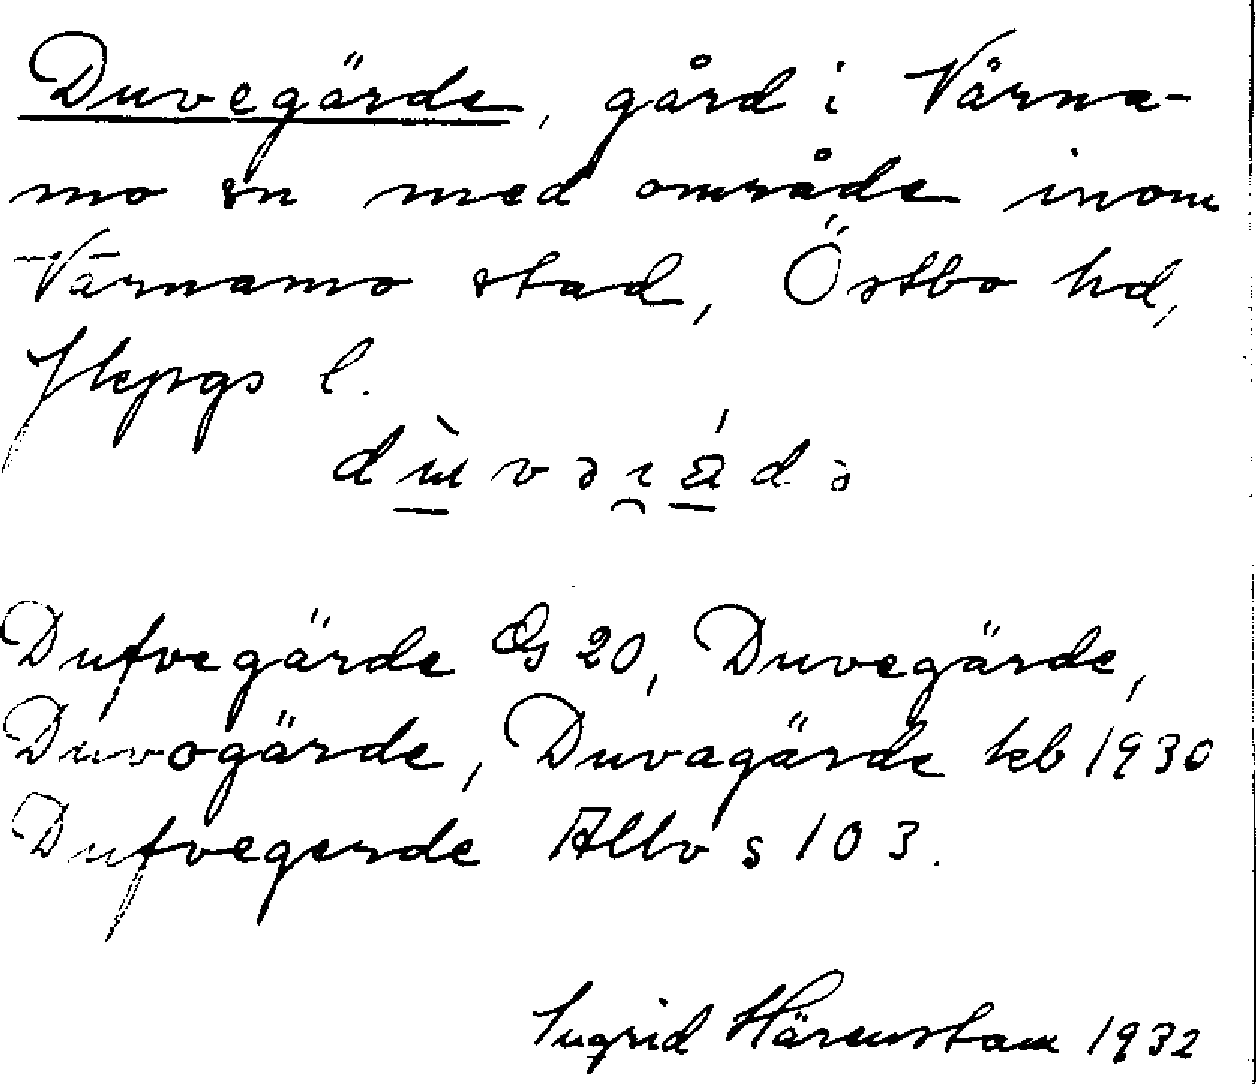 Duvegärde, gård i Värna-
mo sn med område inom
Värnamo stad, Östbo hd,
Jkpgs l.
Dufvegärde GS 20, Duvegärde,
Duvogärde, Duvagärde kb 1930
Dufvegerde Allv s 103.
Ingrid Härenstam 1932